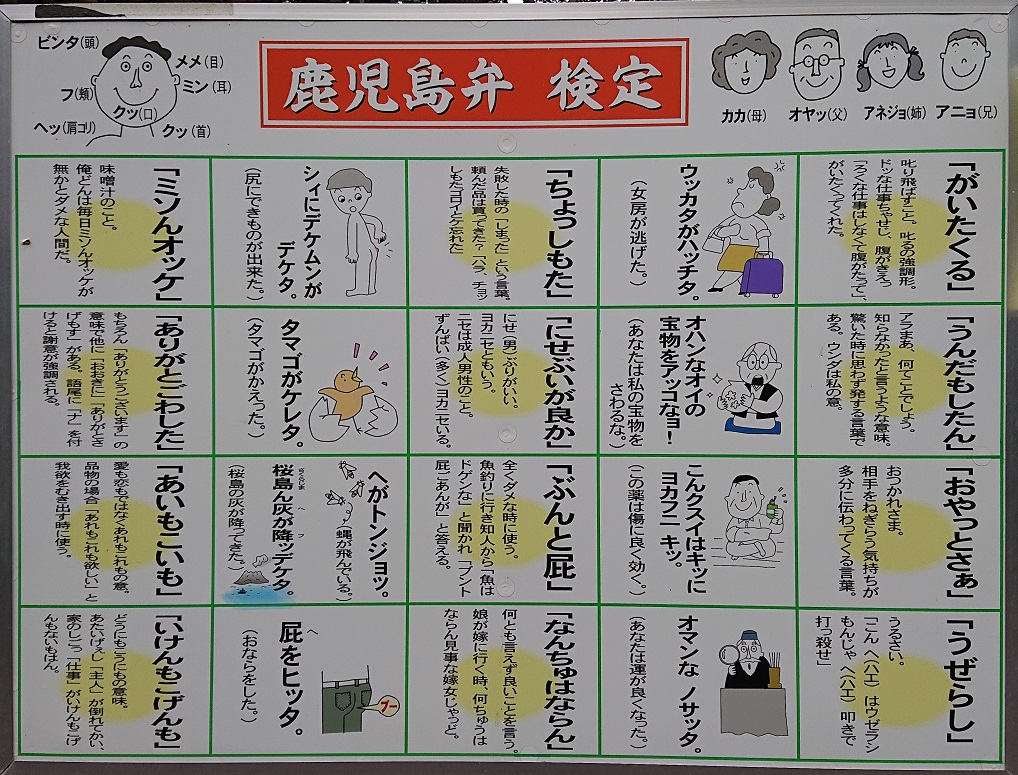 鹿児島弁 検定
ビンタ(頭)
メメ(目)
ミン(耳)
フ(頬)
クッ(口)
ヘッ(肩コリ)
クッ(首)
カカ(母)
オヤッ(父)
アネジョ(姉)
アニョ(兄)
「がいたくる」
叱り飛ばすこと。叱るの強調形。
ドッな仕事ちゃせじ、腹がきえっ
「ろくな仕事はしなくて腹がたって」、
がいたくってくれた。
ウッカタがハッチタ。
(女房が逃げた。)
「ちょっしもた」
失敗した時の「しまった」という言葉。
頼んだ品は買ってきた?「ハラ、チョッ
しもたゴロイと忘れた」
シィにデケムンが
デケタ。
(尻にできものが出来た。)
「ミソんオッケ」
味噌汁のこと。
俺どんは毎日ミソんオッケが
無かとダメな人間だ。
「うんだもしたん」
アラまあ、何てことでしょう。
知らなかったと言うような意味。
驚いた時に思わず発する言葉で
ある。ウンダは私の意。
オハンなオイの
宝物をアッコなョ!
(あなたは私の宝物を
さわるな。)
「にせぶいが良か」
にせ(男)ぶりがいい。
ヨカニセともいう。
ニセは成人男性のこと。
ずんばい(多く)ヨカニセいる。
タマゴがケレタ。
(タマゴがかえった。)
「ありがとごわした」
もちろん「ありがとうございます」の
意味で他に「おおきに」「ありがとさ
げもす」がある。語尾に「ナ」を付
けると謝意が強調される。
「おやっとさぁ」
おつかれさま。
相手をねぎらう気持ちが
多分に伝わってくる言葉。
こんクスイはキッに
ヨカフニ キッ。
(この薬は傷に良く効く。)
「ぶんと屁」
全くダメな時に使う。
魚釣りに行き知人から「魚は
ドゲンな」と聞かれ「ブント
屁ごあんが」と答える。
へがトンジョッ。
(蝿が飛んでいる。)
桜島ん灰が降ッデケタ。
さくらじま ヘ フ
(桜島の灰が降ってきた。)
「あいもこいも」
愛も恋もではなくあれもこれもの意。
品物の場合「あれもこれも欲しい」と
我欲をむき出す時に使う。
「うぜらし」
うるさい。
「こん へ(ハエ)はウゼラシ
もんじゃ へ(ハエ) 叩きで
打っ殺せ」
オマンな ノサッタ。
(あなたは運が良くなった。)
「なんちゅはならん」
何とも言えず良いことを言う。
娘が嫁に行く時、何ちゅうは
ならん見事な嫁女じゃっど。
屁をヒッタ。
へ
(おならをした。)
プー
「いけんもこげんも」
どうにもこうにもの意味。
あたいげぇし「主人」が倒れてかい、
家のしごっ「仕事」がいけんもこげ
んもないもはん。